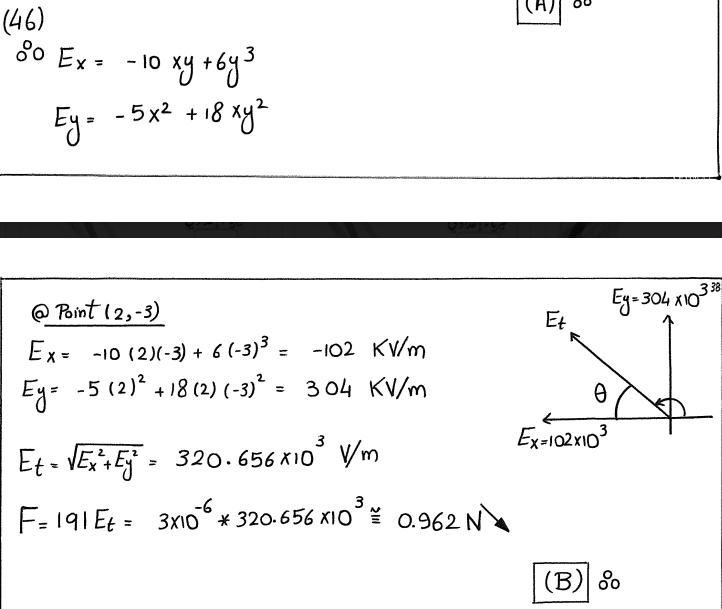 (A)
(46)
Ex = -10 xy + 6y³
Ey = -5x² + 18 xy²
@ Point (2,-3)
Ex = -10 (2)(-3) + 6 (-3)³ = -102 KV/m
Ey = -5 (2)² + 18 (2) (-3)² = 304 KV/m
Et = √Ex²+Ey² = 320.656 x10³ V/m
F = |q| Et = 3x10⁻⁶ * 320.656 x10³ ≅ 0.962 N
Ey=304 x10³
38
Et
θ
Ex=102x10³
(B)